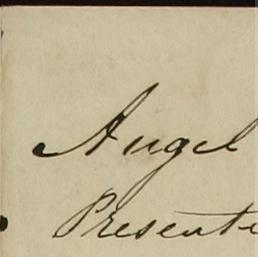 Angel
Presente